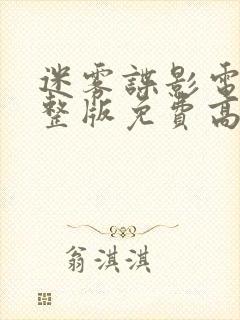 迷雾諜影電
整版免費高
翁淇淇